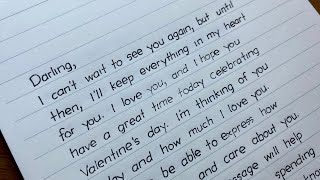 Darling,
I can't wait to see you again, but until
then, I'll keep everything in my heart
for you. I love you, and I hope you
have a great time today celebrating
Valentine's day. I'm thinking of you
day and how much I love you.
be able to express how
and care about you.
message will help
spending